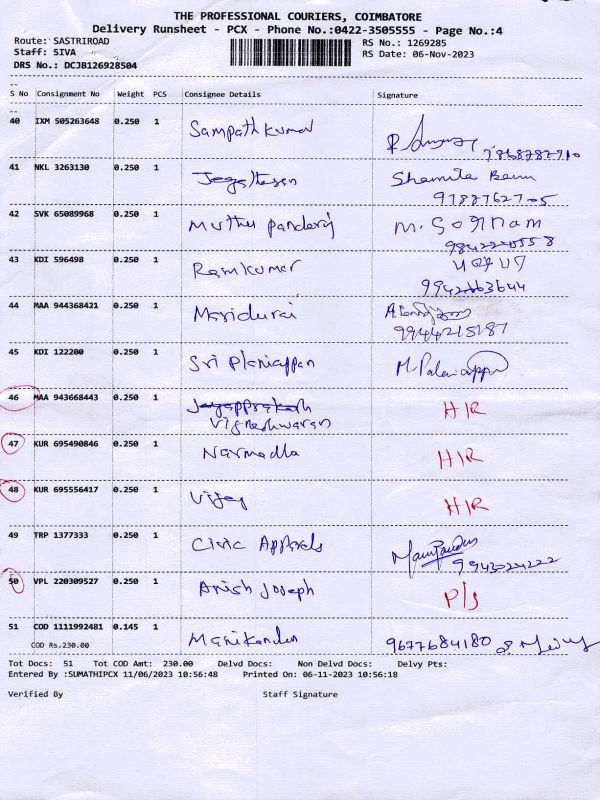 THE PROFESSIONAL COURIERS, COIMBATORE
Delivery Runsheet - PCX - Phone No.:0422-3505555 - Page No.:4
Route: SASTRIROAD RS No.: 1269285
Staff: SIVA RS Date: 06-Nov-2023
DRS No.: DCJB126928504
S No Consignment No Weight PCS Consignee Details Signature
40 IXM 505263648 0.250 1 Sampathkumar
41 NKL 3263130 0.250 1 Shamila Banu
9788762705
42 SVK 65089968 0.250 1 Muthu pandaraj
43 KDI 596498 0.250 1 Ramkumar
9942663644
44 MAA 944368421 0.250 1 Maridurai
9944215187
45 KDI 122200 0.250 1 Sri Planiappan M. Palaniappa
46 MAA 943668443 0.250 1 Jayapprakash H/R
Vigneshwaran
47 KUR 695490846 0.250 1 Narmadha H/R
48 KUR 695556417 0.250 1 Vijay H/R
49 TRP 1377333 0.250 1 Civic Apparels
9943024222
50 VPL 220309527 0.250 1 Anish Joseph P/S
51 COD 1111992481 0.145 1 Manikandan 9677684180
COD Rs.230.00
Tot Docs: 51 Tot COD Amt: 230.00 Delvd Docs: Non Delvd Docs: Delvy Pts:
Entered By :SUMATHIPCX 11/06/2023 10:56:48 Printed On: 06-11-2023 10:56:18
Verified By Staff Signature